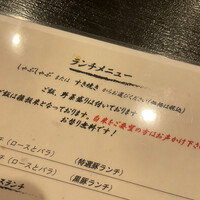 ランチメニュー
(しゃぶしゃぶ または すき焼き からお選びください
ご飯、野菜盛りは付いております
ご飯は雑穀米となっております。白米をご要望の方はお声かけ下さ
お替り無料です!
チ (ロースとバラ) (特選豚ランチ)
チ (ロースとバラ) (黒豚ランチ)
スランチ